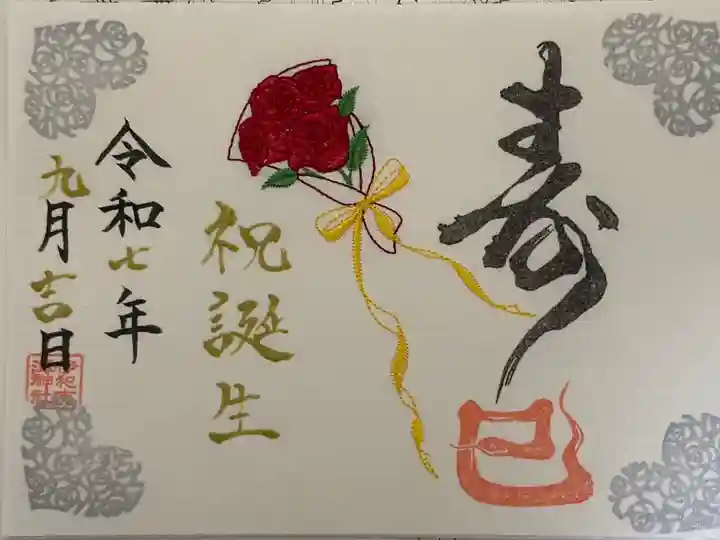 寿
巳
祝誕生
令和七年
九月吉日